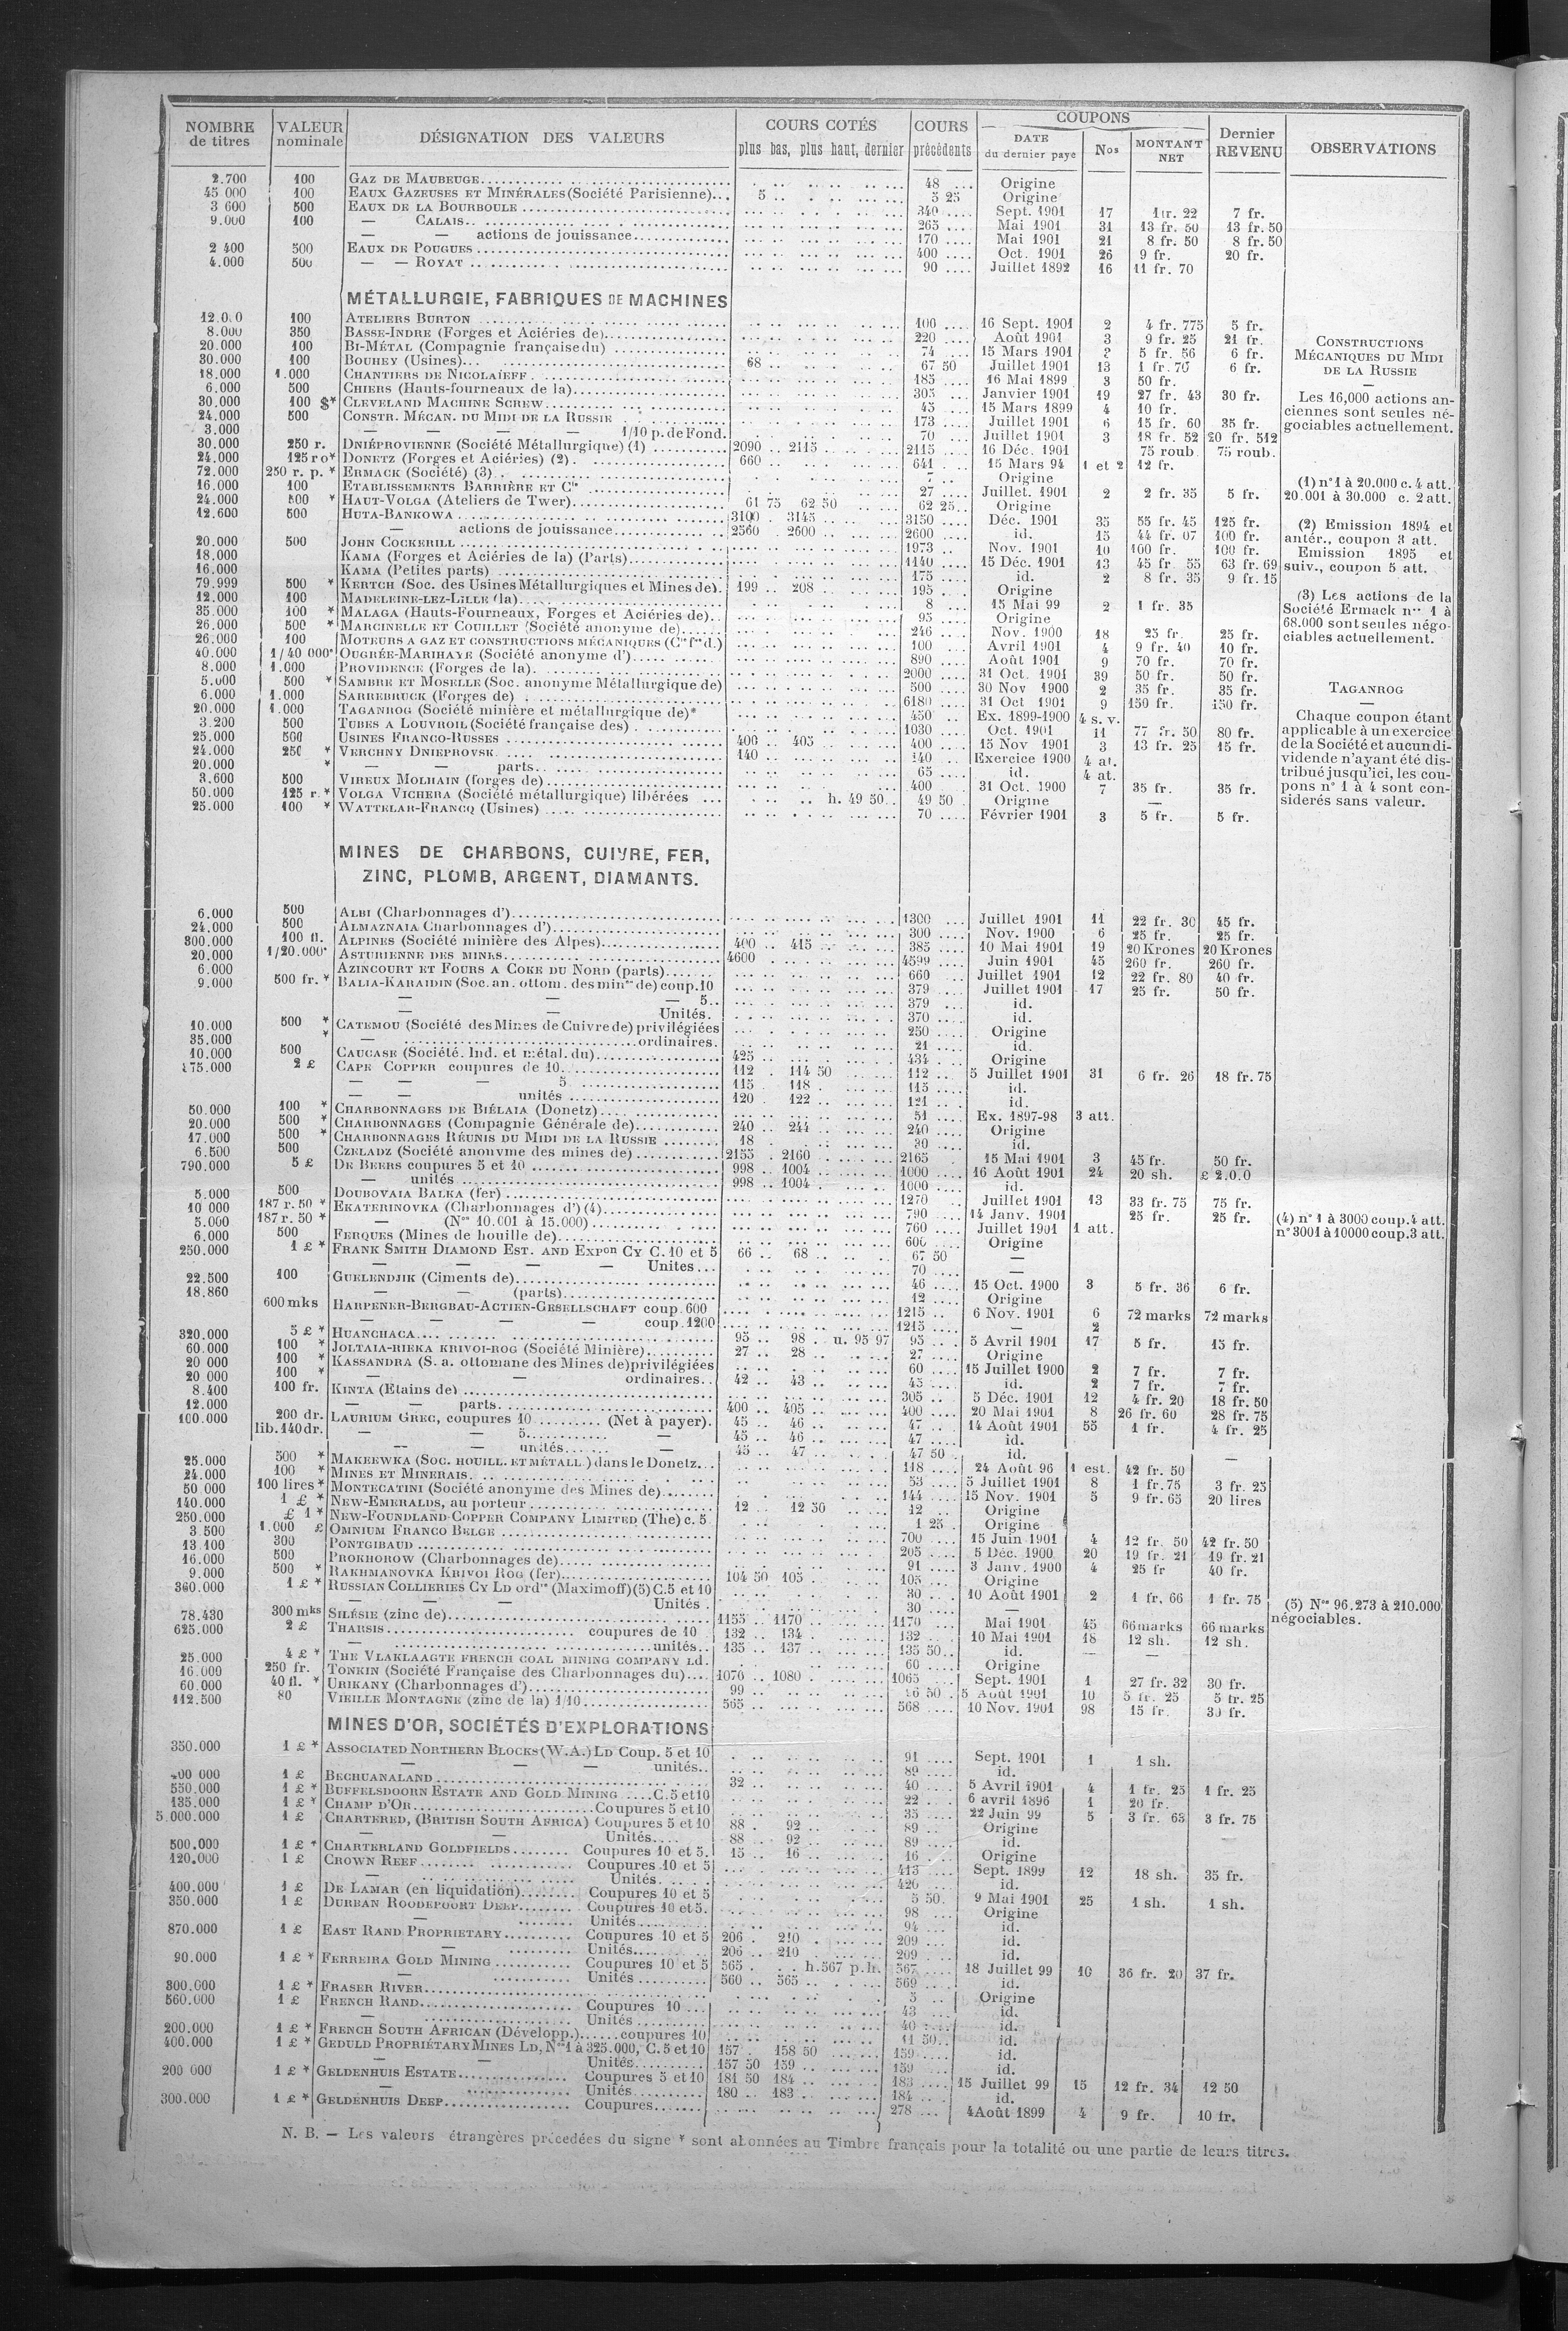 NOMBRE de titres | VALEUR nominale | DÉSIGNATION DES VALEURS | COURS COTÉS plus bas, plus haut, dernier | COURS précédents | COUPONS DATE du dernier paye | Nos | MONTANT NET | Dernier REVENU | OBSERVATIONS
2.700 100 GAZ DE MAUBEUGE 48 Origine
45 000 100 EAUX GAZEUSES ET MINÉRALES (Société Parisienne) 5 5 25 Origine
3 600 500 EAUX DE LA BOURBOULE 340 Sept. 1901 17 1 fr. 22 7 fr.
9.000 100 — CALAIS 265 Mai 1901 31 13 fr. 50 13 fr. 50
— — actions de jouissance 170 Mai 1901 21 8 fr. 50 8 fr. 50
2 400 500 EAUX DE POUGUES 400 Oct. 1901 26 9 fr. 20 fr.
4.000 500 — — ROYAT 90 Juillet 1892 16 11 fr. 70
MÉTALLURGIE, FABRIQUES DE MACHINES
12.000 100 ATELIERS BURTON 100 16 Sept. 1901 2 4 fr. 775 5 fr.
8.000 350 BASSE-INDRE (Forges et Aciéries de) 220 Août 1901 3 9 fr. 25 21 fr.
20.000 100 BI-MÉTAL (Compagnie française du) 74 15 Mars 1901 5 fr. 56 6 fr.
30.000 100 BOUHEY (Usines) 68 67 50 Juillet 1901 13 1 fr. 70 6 fr.
18.000 1.000 CHANTIERS DE NICOLAÏEFF 485 16 Mai 1899 3 50 fr.
6.000 500 CHIERS (Hauts-fourneaux de la) 305 Janvier 1901 19 27 fr. 43 30 fr.
30.000 100 $* CLEVELAND MACHINE SCREW 45 15 Mars 1899 4 10 fr.
24.000 500 CONSTR. MÉCAN. DU MIDI DE LA RUSSIE 173 Juillet 1901 6 15 fr. 60 35 fr.
3.000 — — — — 1/10 p. de Fond. 70 Juillet 1901 3 18 fr. 52 20 fr. 512
30.000 250 r. DNIÉPROVIENNE (Société Métallurgique) (1) 2090 2115 2115 16 Déc. 1901 75 roub. 75 roub.
24.000 125 ro* DONETZ (Forges et Aciéries) (2) 660 641 15 Mars 94 1 et 2 12 fr.
72.000 250 r. p. * ERMACK (Société) (3) 7 Origine
16.000 100 ETABLISSEMENTS BARRIÈRE ET Cie 27 Juillet. 1901 2 2 fr. 35 5 fr.
24.000 500 * HAUT-VOLGA (Ateliers de Twer) 61 75 62 50 62 25 Origine
12.600 500 HUTA-BANKOWA 3100 3145 3150 Déc. 1901 35 55 fr. 45 125 fr.
— actions de jouissance 2560 2600 2600 id. 15 44 fr. 07 100 fr.
20.000 500 JOHN COCKERILL 1973 Nov. 1901 10 100 fr. 100 fr.
18.000 KAMA (Forges et Aciéries de la) (Parts) 1140 15 Déc. 1901 13 45 fr. 55 63 fr. 69
16.000 KAMA (Petites parts) 175 id. 2 8 fr. 35 9 fr. 15
79.999 500 * KERTCH (Soc. des Usines Métallurgiques et Mines de) 199 208 195 Origine
12.000 100 MADELEINE-LEZ-LILLE (la) 8 15 Mai 99 2 1 fr. 35
35.000 100 * MALAGA (Hauts-Fourneaux, Forges et Aciéries de) 95 Origine
26.000 500 * MARCINELLE ET COUILLET (Société anonyme de) 246 Nov. 1900 18 25 fr. 25 fr.
26.000 100 MOTEURS A GAZ ET CONSTRUCTIONS MÉCANIQUES (Cie fse d.) 100 Avril 1901 4 9 fr. 40 10 fr.
40.000 1/40 000* OUGRÉE-MARIHAYE (Société anonyme d') 890 Août 1901 9 70 fr. 70 fr.
8.000 1.000 PROVIDENCE (Forges de la) 2000 31 Oct. 1901 39 50 fr. 50 fr.
5.000 500 * SAMBRE ET MOSELLE (Soc. anonyme Métallurgique de) 500 30 Nov 1900 2 35 fr. 35 fr.
6.000 1.000 SARREBRUCK (Forges de) 6180 31 Oct 1901 9 150 fr. 150 fr.
20.000 1.000 TAGANROG (Société minière et métallurgique de)* 450 Ex. 1899-1900 4 s. v.
3.200 500 TUBES A LOUVROIL (Société française des) 1030 Oct. 1901 11 77 fr. 50 80 fr.
25.000 500 USINES FRANCO-RUSSES 400 405 400 15 Nov 1901 3 13 fr. 25 15 fr.
24.000 250 * VERCHNY DNIEPROVSK 140 140 Exercice 1900 4 at.
20.000 * — — parts 65 id. 4 at.
3.600 500 VIREUX MOLHAIN (forges de) 400 31 Oct. 1900 7 35 fr. 35 fr.
50.000 125 r. * VOLGA VICHERA (Société métallurgique) libérées h. 49 50 49 50 Origine —
25.000 100 * WATTELAR-FRANCQ (Usines) 70 Février 1901 3 5 fr. 5 fr.
CONSTRUCTIONS
MÉCANIQUES DU MIDI
DE LA RUSSIE
—
Les 16,000 actions an-
ciennes sont seules né-
gociables actuellement.
(1) n° 1 à 20.000 c. 4 att.
20.001 à 30.000 c. 2 att.
(2) Emission 1894 et
antér., coupon 3 att.
Emission 1895 et
suiv., coupon 5 att.
(3) Les actions de la
Société Ermack nos 1 à
68.000 sont seules négo-
ciables actuellement.
TAGANROG
—
Chaque coupon étant
applicable à un exercice
de la Société et aucun di-
vidende n'ayant été dis-
tribué jusqu'ici, les cou-
pons n° 1 à 4 sont con-
siderés sans valeur.
MINES DE CHARBONS, CUIVRE, FER,
ZINC, PLOMB, ARGENT, DIAMANTS.
6.000 500 ALBI (Charbonnages d') 1300 Juillet 1901 11 22 fr. 30 45 fr.
24.000 500 ALMAZNAIA Charbonnages d') 300 Nov. 1900 6 25 fr. 25 fr.
300.000 100 fl. ALPINES (Société minière des Alpes) 400 415 385 10 Mai 1901 19 20 Krones 20 Krones
20.000 1/20.000* ASTURIENNE DES MINES 4600 4599 Juin 1901 45 260 fr. 260 fr.
6.000 AZINCOURT ET FOURS A COKE DU NORD (parts) 660 Juillet 1901 12 22 fr. 80 40 fr.
9.000 500 fr. * BALIA-KARAIDIN (Soc. an. ottom. des mines de) coup. 10 379 Juillet 1901 17 25 fr. 50 fr.
— — — 5 379 id.
— — Unités. 370 id.
10.000 500 * CATEMOU (Société des Mines de Cuivre de) privilégiées 250 Origine
35.000 * — ordinaires. 21 id.
10.000 500 CAUCASE (Société. Ind. et métal. du) 425 434 Origine
175.000 2 £ CAPE COPPER coupures de 10 112 114 50 112 5 Juillet 1901 31 6 fr. 26 18 fr. 75
— — — 5 115 118 115 id.
— — unités 120 122 121 id.
50.000 100 * CHARBONNAGES DE BIÉLAIA (Donetz) 51 Ex. 1897-98 3 att.
20.000 500 * CHARBONNAGES (Compagnie Générale de) 240 244 240 Origine
17.000 500 * CHARBONNAGES RÉUNIS DU MIDI DE LA RUSSIE 18 30 id.
6.500 500 CZELADZ (Société anonyme des mines de) 2155 2160 2165 15 Mai 1901 3 45 fr. 50 fr.
790.000 5 £ DE BEERS coupures 5 et 10 998 1004 1000 16 Août 1901 24 20 sh. £ 2.0.0
— unités 998 1004 1000 id.
5.000 500 DOUBOVAIA BALKA (fer) 1270 Juillet 1901 13 33 fr. 75 75 fr.
10 000 187 r. 50 * EKATERINOVKA (Charbonnages d') (4) 790 14 Janv. 1901 25 fr. 25 fr.
5.000 187 r. 50 * — (Nos 10.001 à 15.000) 760 Juillet 1901 1 att.
6.000 500 FERQUES (Mines de houille de) 600 Origine
250.000 1 £ * FRANK SMITH DIAMOND EST. AND EXPon CY C. 10 et 5 66 68 67 50 —
— — — — Unites 70 —
22.500 100 GUELENDJIK (Ciments de) 46 15 Oct. 1900 3 5 fr. 36 6 fr.
18.860 — (parts) 12 Origine
600 mks HARPENER-BERGBAU-ACTIEN-GESELLSCHAFT coup. 600 1215 6 Nov. 1901 6 72 marks 72 marks
— — — — coup. 1200 1215 — 2
320.000 5 £ * HUANCHACA 95 98 u. 95 97 95 5 Avril 1901 17 5 fr. 15 fr.
60.000 100 * JOLTAIA-RIEKA KRIVOI-ROG (Société Minière) 27 28 27 Origine
20 000 100 * KASSANDRA (S. a. ottomane des Mines de) privilégiées 60 15 Juillet 1900 2 7 fr. 7 fr.
20 000 100 * — — ordinaires. 42 43 45 id. 2 7 fr. 7 fr.
8.400 100 fr. KINTA (Etains de) 305 5 Déc. 1901 12 4 fr. 20 18 fr. 50
12.000 — — parts 400 405 400 20 Mai 1901 8 26 fr. 60 28 fr. 75
100.000 200 dr. LAURIUM GREC, coupures 10 (Net à payer). 45 46 47 14 Août 1901 55 1 fr. 4 fr. 25
lib. 140 dr. — — 5 — 45 46 47 id.
— — unités — 45 47 47 50 id. —
25.000 500 * MAKEEWKA (SOC. HOUILL. ET MÉTALL.) dans le Donetz 118 24 Août 96 1 est. 42 fr. 50
24.000 100 * MINES ET MINERAIS 53 5 Juillet 1901 8 1 fr. 75 3 fr. 25
50 000 100 lires * MONTECATINI (Société anonyme des Mines de) 144 15 Nov. 1901 5 9 fr. 65 20 lires
140.000 1 £ * NEW-EMERALDS, au porteur 12 12 50 12 Origine
250.000 £ 1 * NEW-FOUNDLAND COPPER COMPANY LIMITED (The) c. 5 1 25 Origine
3 500 1.000 £ OMNIUM FRANCO BELGE 700 15 Juin 1901 4 12 fr. 50 42 fr. 50
13 100 300 PONTGIBAUD 205 5 Déc. 1900 20 19 fr. 21 19 fr. 21
16.000 500 PROKHOROW (Charbonnages de) 91 3 Janv. 1900 4 25 fr 40 fr.
9.000 500 * RAKHMANOVKA KRIVOI ROG (fer) 104 50 105 105 Origine
360.000 1 £ * RUSSIAN COLLIERIES CY LD ordres (Maximoff) (5) C. 5 et 10 30 10 Août 1901 2 1 fr. 66 1 fr. 75
— — — Unités 30 —
78.430 300 mks SILÉSIE (zinc de) 1155 1170 1170 Mai 1901 45 66 marks 66 marks
625.000 2 £ THARSIS coupures de 10 132 134 132 10 Mai 1901 18 12 sh. 12 sh.
— unités 135 137 135 50 id. — —
25.000 4 £ * THE VLAKLAAGTE FRENCH COAL MINING COMPANY Ld. 60 Origine
16.000 250 fr. TONKIN (Société Française des Charbonnages du) 1070 1080 1065 Sept. 1901 1 27 fr. 32 30 fr.
60.000 40 fl. * URIKANY (Charbonnages d') 99 50 5 Août 1901 10 5 fr. 25 5 fr. 25
112.500 80 VIEILLE MONTAGNE (zinc de la) 1/10 565 568 10 Nov. 1901 98 15 fr. 30 fr.
(4) n° 1 à 3000 coup. 4 att.
n° 3001 à 10000 coup. 3 att.
(5) Nos 96.273 à 210.000
négociables.
MINES D'OR, SOCIÉTÉS D'EXPLORATIONS
350.000 1 £ * ASSOCIATED NORTHERN BLOCKS (W.A.) LD Coup. 5 et 10 91 Sept. 1901 1 1 sh.
— — — unités 89 id.
00 000 1 £ BECHUANALAND 32 40 5 Avril 1901 4 1 fr. 25 1 fr. 25
550.000 1 £ * BUFFELSDOORN ESTATE AND GOLD MINING C. 5 et 10 22 6 avril 1896 1 20 fr.
135.000 1 £ * CHAMP D'OR Coupures 5 et 10 35 22 Juin 99 5 3 fr. 63 3 fr. 75
5.000.000 1 £ CHARTERED, (BRITISH SOUTH AFRICA) Coupures 5 et 10 88 92 89 Origine
— — Unités 88 92 89 id.
500.000 1 £ * CHARTERLAND GOLDFIELDS Coupures 10 et 5 15 16 16 Origine
120.000 1 £ CROWN REEF Coupures 10 et 5 413 Sept. 1899 12 18 sh. 35 fr.
— Unités 420 id.
400.000 1 £ DE LAMAR (en liquidation) Coupures 10 et 5 5 50 9 Mai 1901 25 1 sh. 1 sh.
350.000 1 £ DURBAN ROODEPOORT DEEP Coupures 10 et 5 98 Origine
— Unités 94 id.
870.000 1 £ EAST RAND PROPRIETARY Coupures 10 et 5 206 210 209 id.
— Unités 206 210 209 id.
90.000 1 £ * FERREIRA GOLD MINING Coupures 10 et 5 565 h. 567 p. h. 567 18 Juillet 99 10 36 fr. 20 37 fr.
— Unités 560 565 569 id.
300.000 1 £ * FRASER RIVER 5 Origine
560.000 1 £ FRENCH RAND Coupures 10 43 id.
— Unités 40 id.
200.000 1 £ * FRENCH SOUTH AFRICAN (Développ.) coupures 10 11 50 id.
400.000 1 £ * GEDULD PROPRIÉTARY MINES LD, Nos 1 à 325.000, C. 5 et 10 157 158 50 159 id.
— — Unités 157 50 159 159 id.
200 000 1 £ * GELDENHUIS ESTATE Coupures 5 et 10 181 50 184 183 15 Juillet 99 15 12 fr. 34 12 50
— Unités 180 183 184 id.
300.000 1 £ * GELDENHUIS DEEP Coupures 278 4 Août 1899 4 9 fr. 10 fr.
N. B. — Les valeurs étrangères précedées du signe * sont abonnées au Timbre français pour la totalité ou une partie de leurs titres.